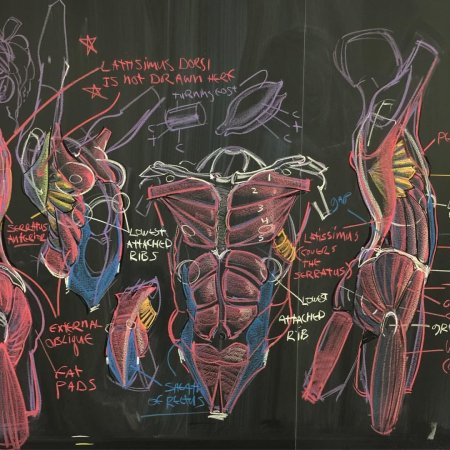 LATISIMUS DORSI
IS NOT DRAWN HERE
C
C
C
T
C
T
1
2
3
4
5
SERRATUS
ANTERIOR
LOWEST
ATTACHED
RIBS
GAP
LATISSIMUS
COVERS
THE
SERRATUS
LOWEST
ATTACHED
RIB
EXTERNAL
OBLIQUE
FAT
PADS
SHEATH
OF RECTUS